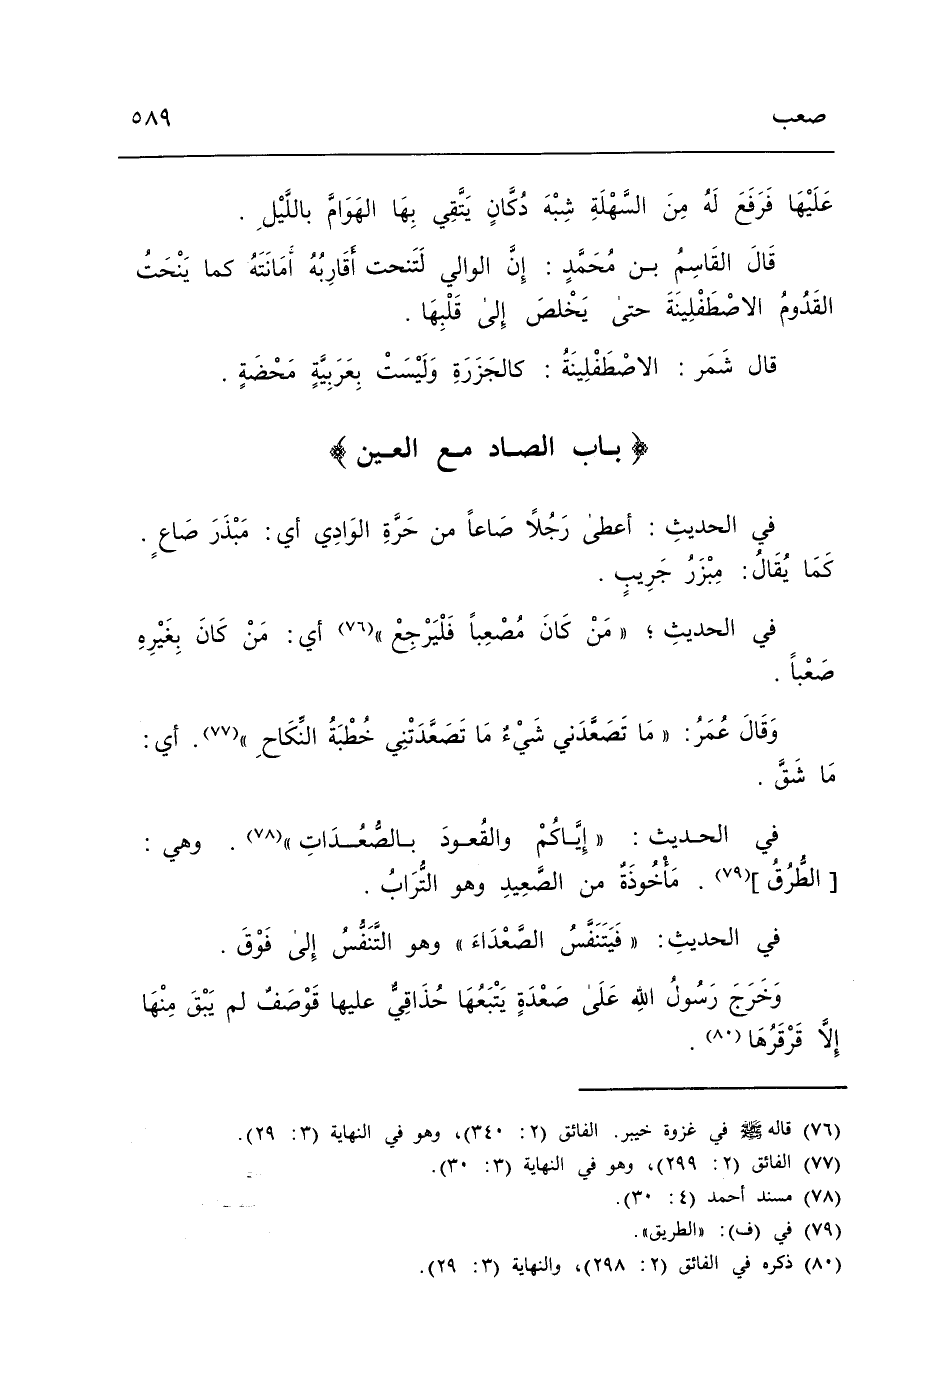 صعب ٥٨٩
عَلَيْهَا فَرَفَعَ لَهُ مِنَ السَّهْلَةِ شِبْهَ دُكَّانٍ يَتَّقِي بِهَا الهَوَامَّ باللَّيْلِ .
قَالَ القَاسِمُ بن مُحَمَّدٍ : إنَّ الوالي لَتَنحت أَقَارِبُهُ أمَانَتَهُ كما يَنْحَتُ
القَدُومُ الاصْطَفْلِينَةَ حتىٰ يَخْلصَ إلىٰ قَلْبِهَا .
قال شَمَر : الاصْطَفْلِينَةُ : كالجَزَرَةِ وَلَيْسَتْ بِعَرَبِيَّةٍ مَحْضَةٍ .
﴿ باب الصاد مع العين ﴾
في الحديثِ : أعطىٰ رَجُلاً صَاعاً من حَرَّةِ الوَادِي أي: مَبْذَرَ صَاعٍ .
كَمَا يُقَالُ: مِبْزَرُ جَرِيبٍ .
في الحديثِ ؛ « مَنْ كَانَ مُصْعِباً فَلْيَرْجِعْ »(٧٦) أي: مَنْ كَانَ بِغَيْرِهِ
صَعْباً .
وَقَالَ عُمَرُ: « مَا تَصَعَّدَني شَيْءٌ مَا تَصَعَّدَتْنِي خُطْبَةُ النِّكَاحِ »(٧٧). أي:
مَا شَقَّ .
في الحديث : « إيَّاكُمْ والقُعودَ بالصُّعُدَاتِ »(٧٨) . وهي :
[ الطُّرُقُ ](٧٩) . مَأْخُوذَةٌ من الصَّعِيدِ وهو التُّرَابُ .
في الحديثِ: « فَيَتَنَفَّسُ الصَّعْدَاءَ » وهو التَّنَفُّسُ إلىٰ فَوْقَ .
وَخَرَجَ رَسُولُ اللهِ عَلَىٰ صَعْدَةٍ يَتْبَعُهَا حُذَاقِيٌّ عليها قَوْصَفٌ لم يَبْقَ مِنْهَا
إلَّا قَرْقَرُهَا (٨٠) .
(٧٦) قاله ﷺ في غزوة خيبر. الفائق (٢: ٣٤٠)، وهو في النهاية (٣: ٢٩).
(٧٧) الفائق (٢: ٢٩٩)، وهو في النهاية (٣: ٣٠).
(٧٨) مسند أحمد (٤: ٣٠).
(٧٩) في (ف): «الطريق».
(٨٠) ذكره في الفائق (٢: ٢٩٨)، والنهاية (٣: ٢٩).